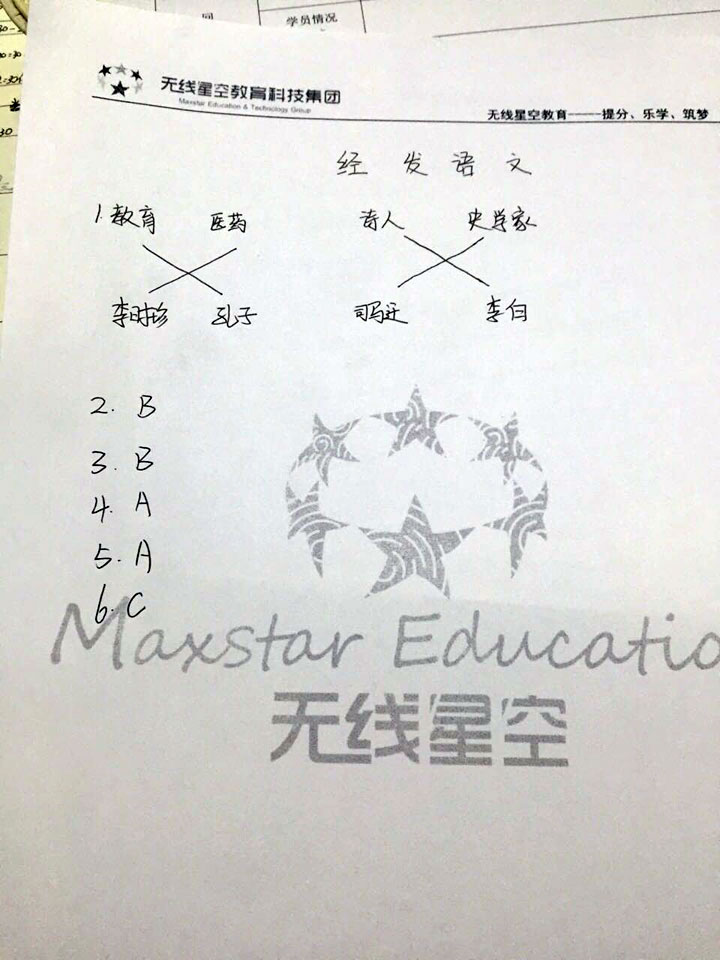 学员情况
无线星空教育科技集团
Maxstar Education & Technology Group
无线星空教育——提分、乐学、筑梦
经发语文
1. 教育 医药 诗人 史学家
李时珍 孔子 司马迁 李白
2. B
3. B
4. A
5. A
6. C
Maxstar Educatio
无线星空